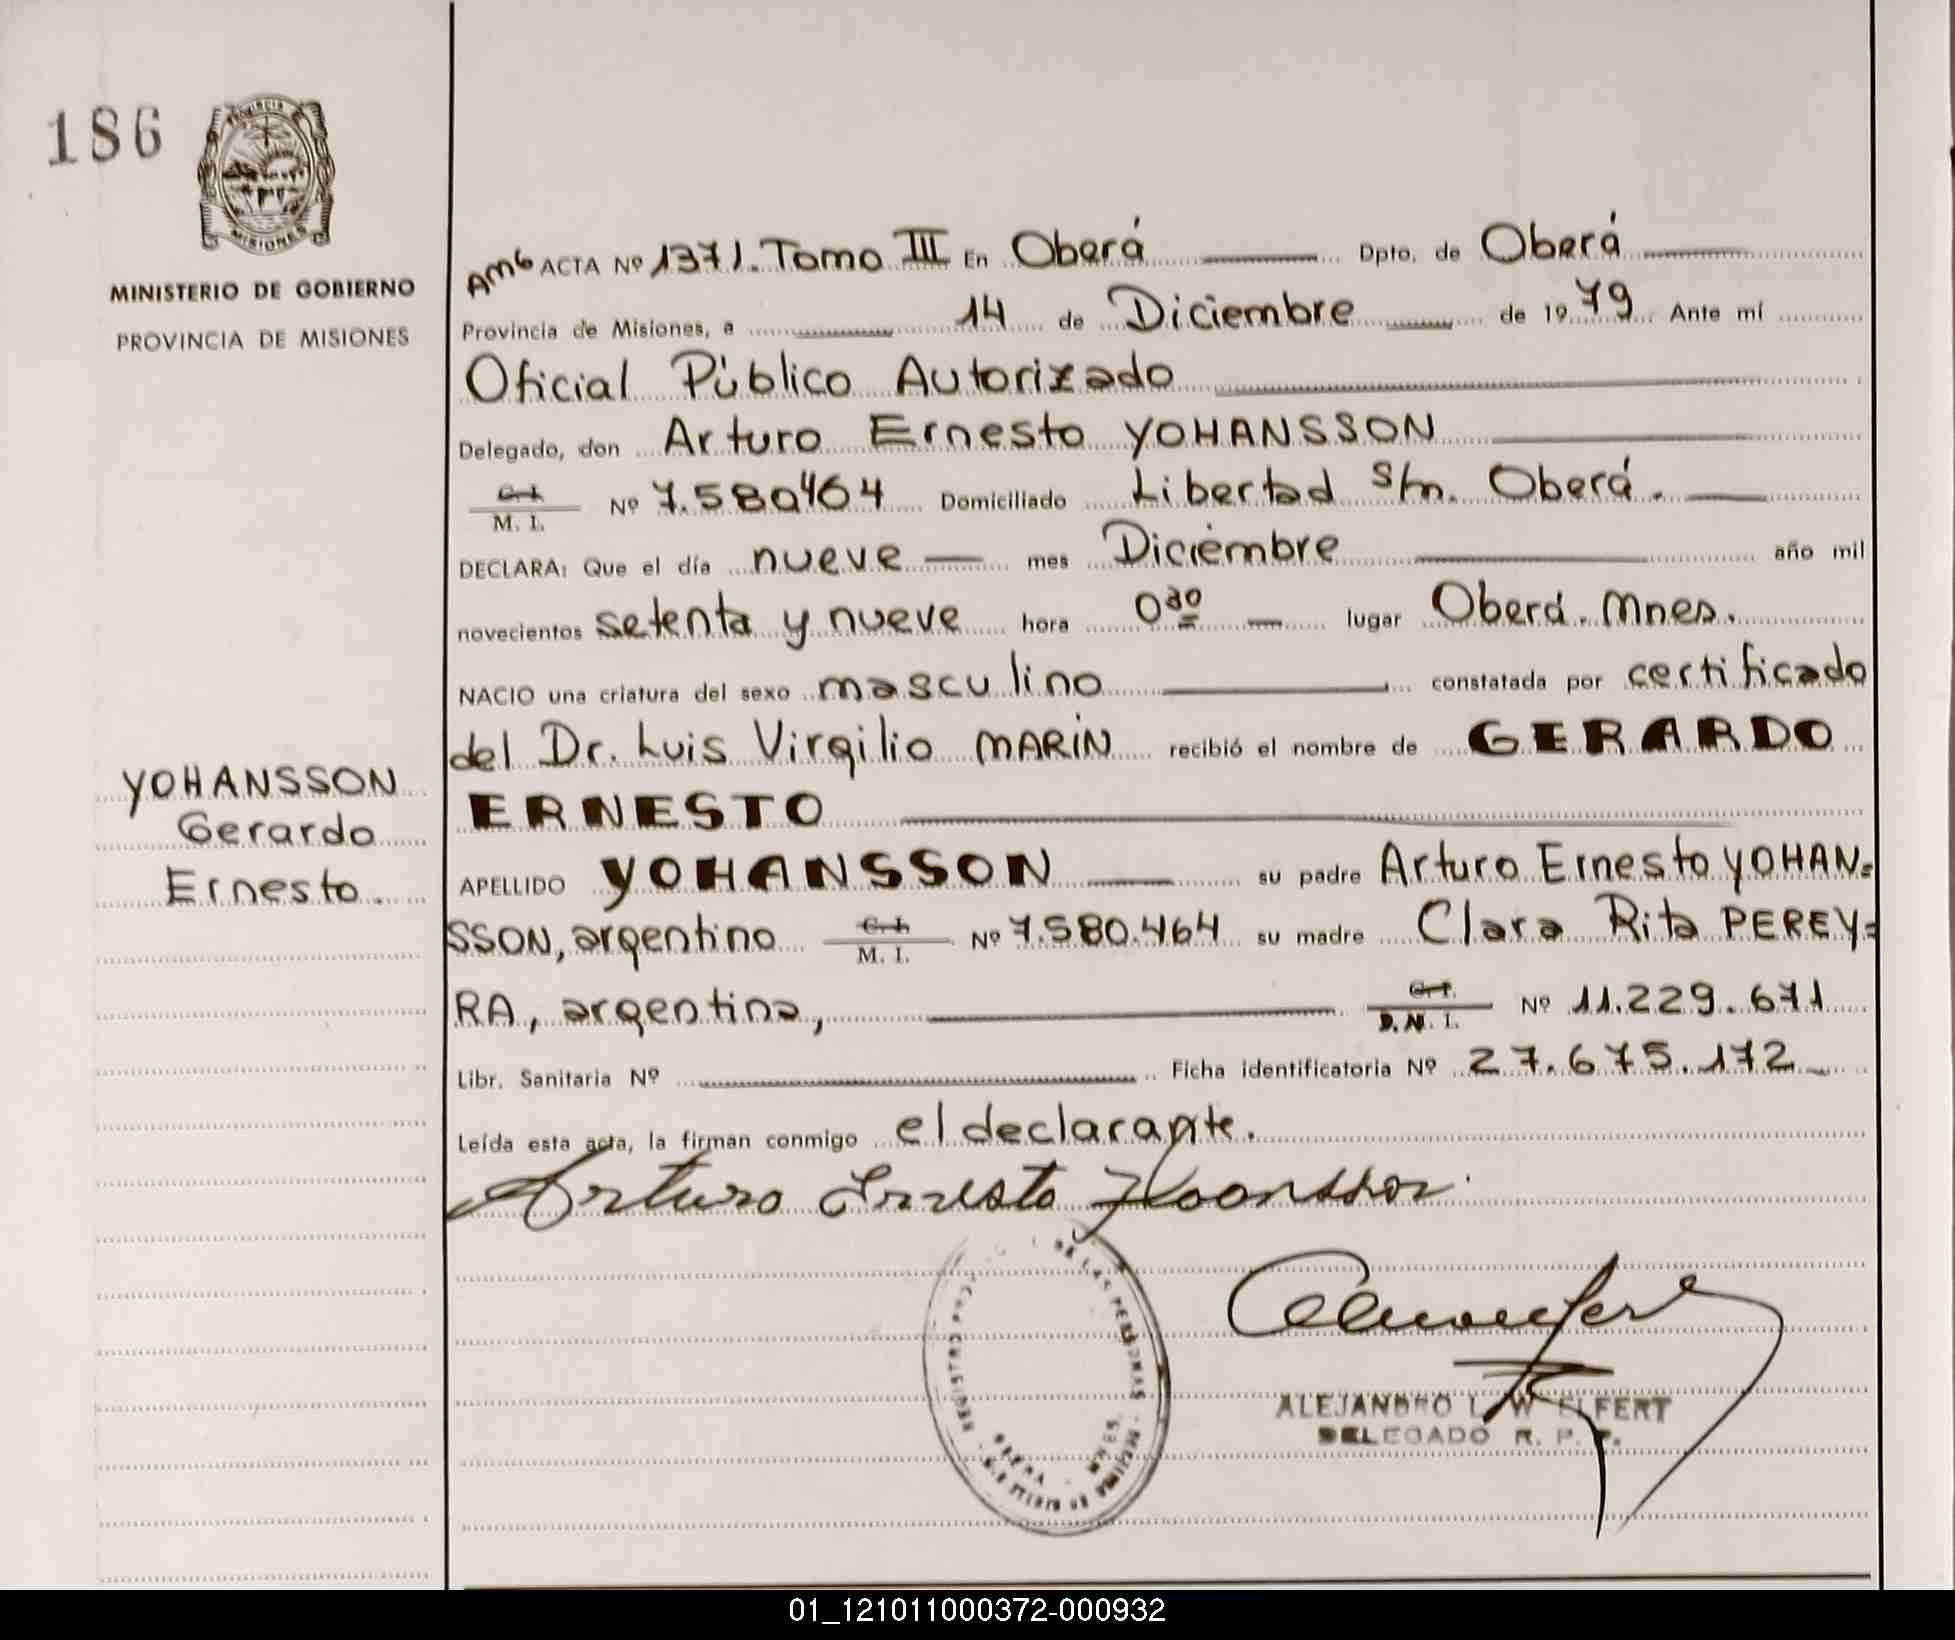 186
MISIONES
MINISTERIO DE GOBIERNO
PROVINCIA DE MISIONES
YOHANSSON
Gerardo
Ernesto.
ACTA Nº 1371. Tomo III En Oberá Dpto. de Oberá
Provincia de Misiones, a 14 de Diciembre de 1979 Ante mí
Oficial Público Autorizado
Delegado, don Arturo Ernesto YOHANSSON
C. I.
M. I. Nº 7.580464 Domiciliado Libertad S/n. Oberá.
DECLARA: Que el día nueve mes Diciembre año mil
novecientos setenta y nueve hora 0³⁰ lugar Oberá. Mnes.
NACIO una criatura del sexo masculino constatada por certificado
del Dr. Luis Virgilio MARIN recibió el nombre de GERARDO
ERNESTO
APELLIDO YOHANSSON su padre Arturo Ernesto YOHAN=
SSON, argentino C. I. M. I. Nº 7.580.464 su madre Clara Rita PEREY=
RA, argentina, C. I. D. N. I. Nº 11.229.671
Libr. Sanitaria Nº Ficha identificatoria Nº 27.675.172
Leída esta acta, la firman conmigo el declarante.
Arturo Ernesto
DE LAS PERSONAS
REGISTRO PROV
OBERA - MNES.
ALEJANDRO L. W ELFERT
DELEGADO R. P. P.
01_121011000372-000932